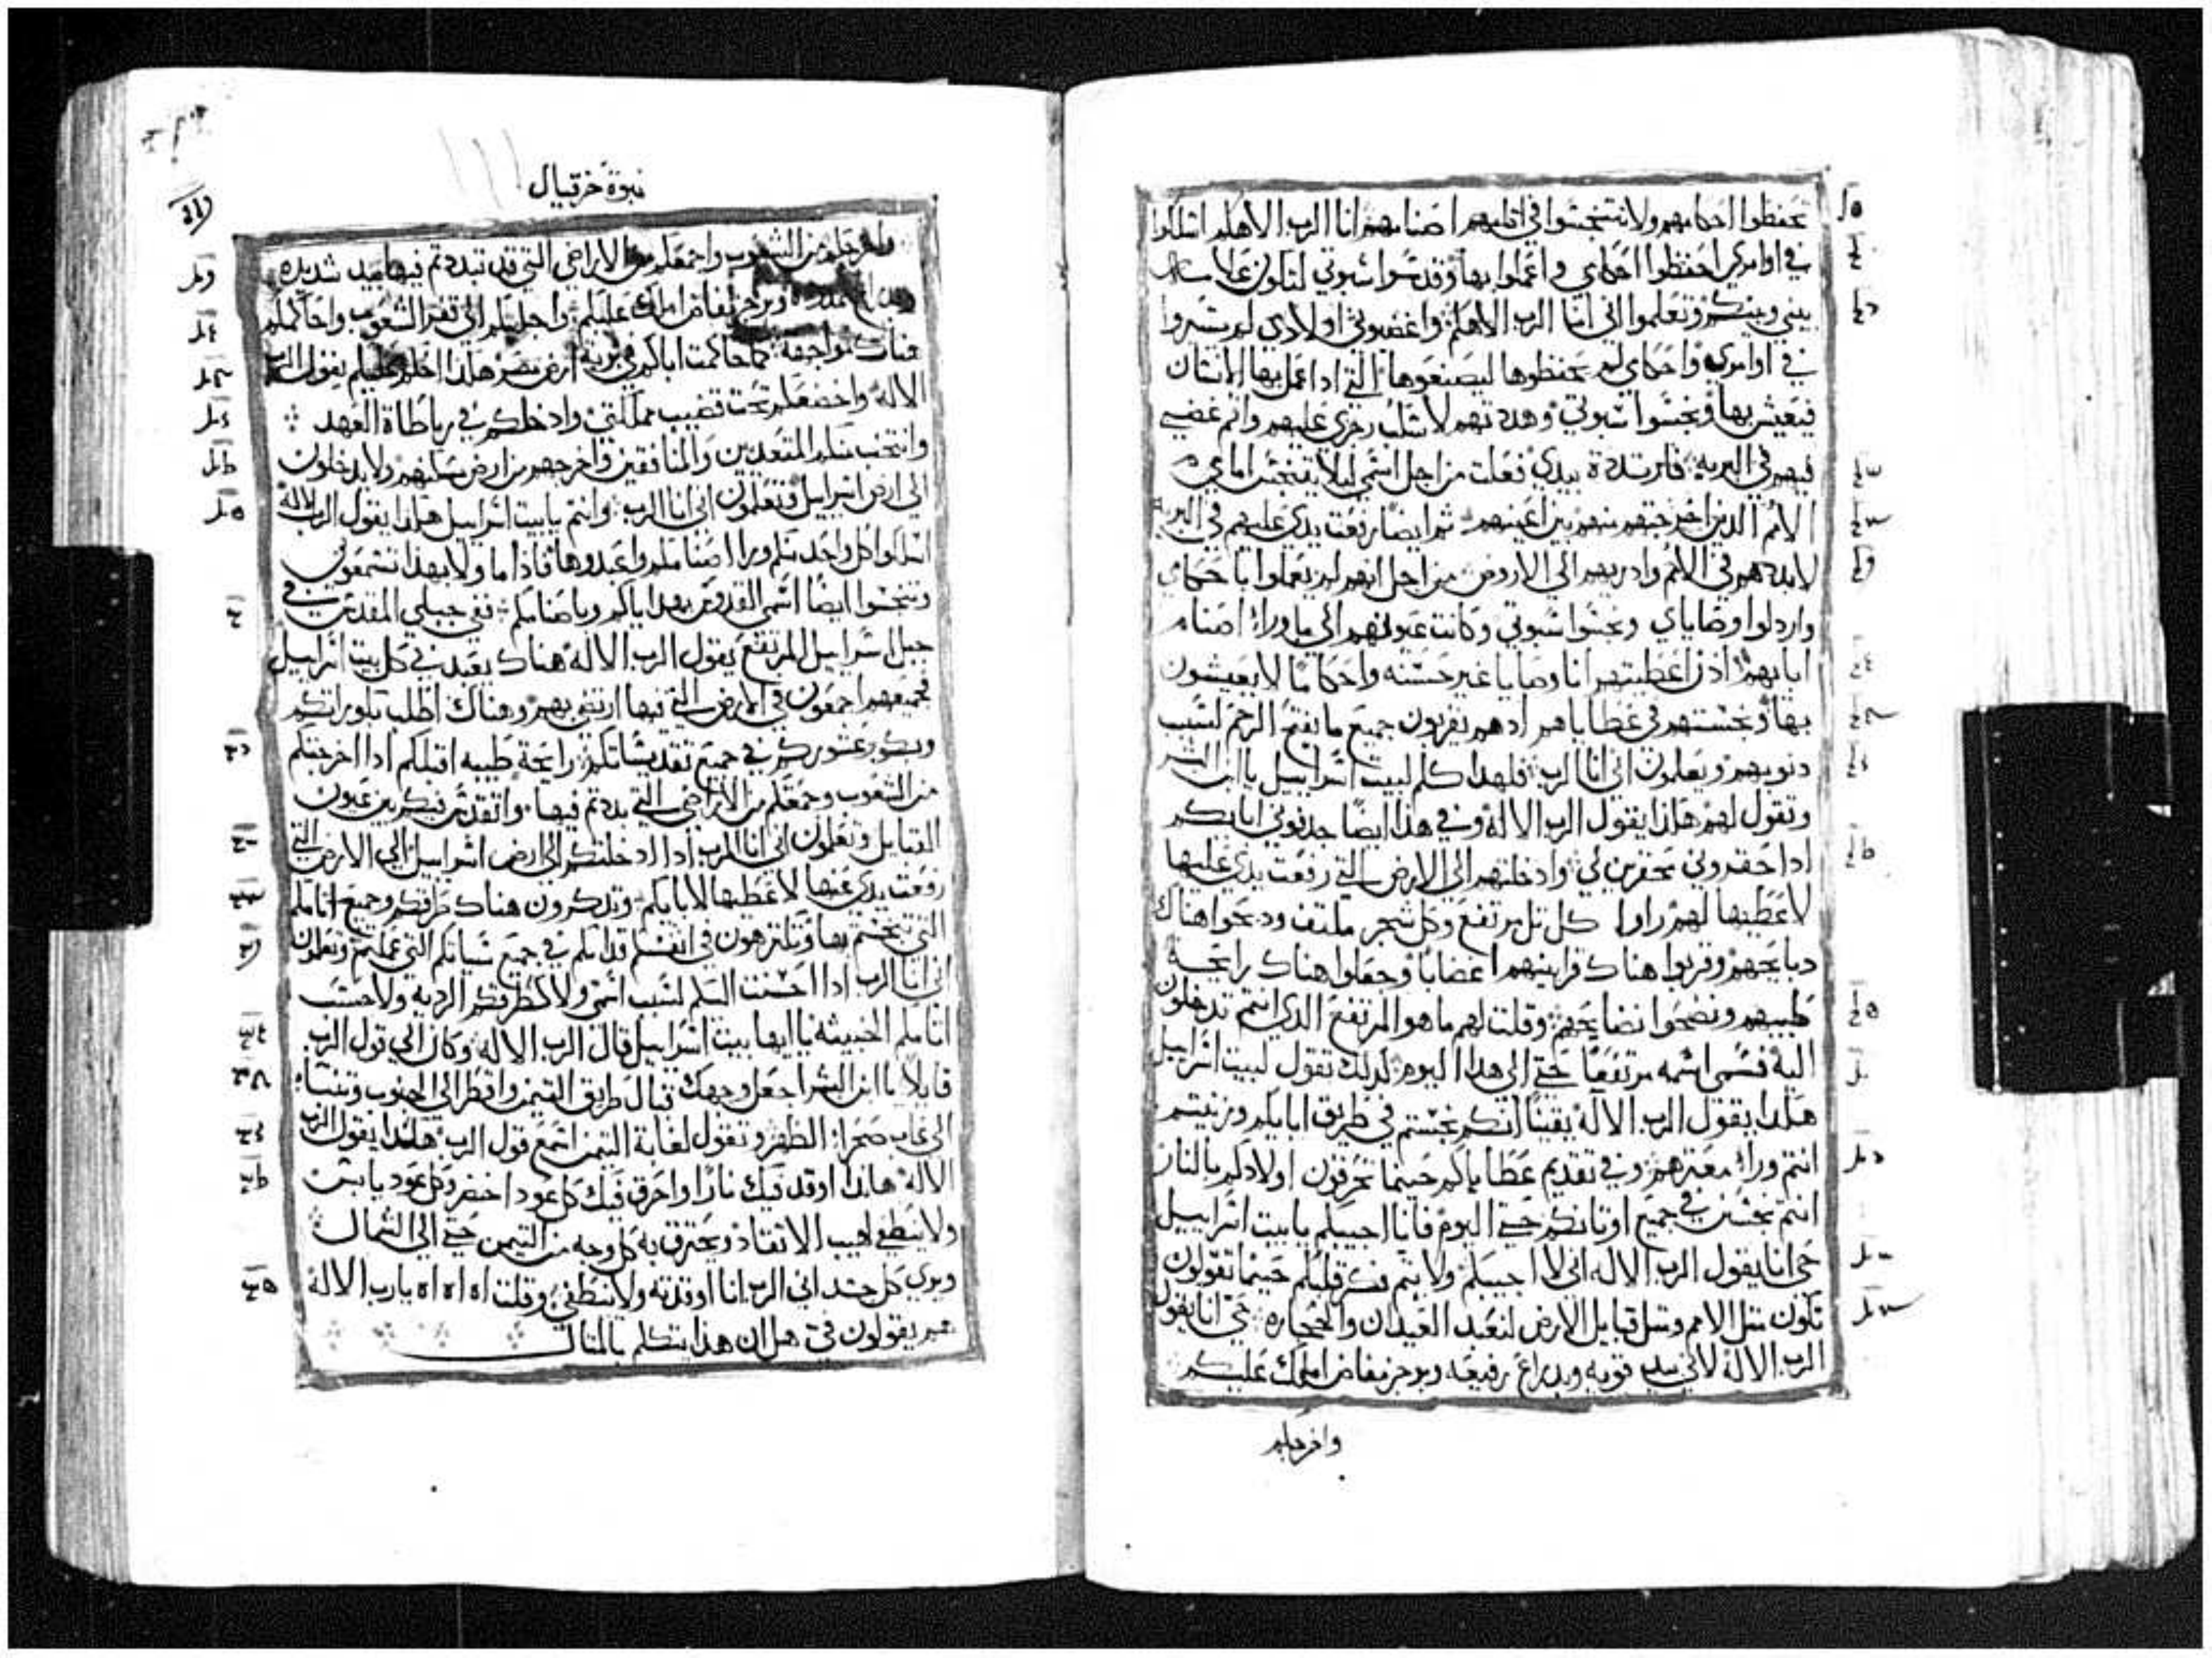 تحفظوا احكامهم ولا تتنجسوا في اثامهم اصنامهم انا الرب الاهكم اسلكوا
في اوامري احفظوا احكامي واعملوا بها وقدسوا سبوتي لتكون علامه
بيني وبينكم وتعلموا اني انا الرب الاهكم واغضبوني اولادي لم يسيروا
في اوامري واحكامي لم يحفظوها ليصنعوها التي اذا عمل بها الانسان
فيعيش بها ونجسوا سبوتي وهددتهم لاسكب رجزي عليهم واتم غضبي
فيهم في البريه فارتددة بيدي فعلت من اجل اسمي ليلا يتنجس امام
الامم الذين اخرجتهم منهم بين اعينهم ثم ايضا رفعت يدي عليهم في البريه
لابددهم في الامم وادريهم الي الارض من اجل انهم لم يعملوا باحكامي
واردلوا وصاياي ونجسوا سبوتي وكانت عيونهم الي ما وراء اصنام
ابايهم اذن اعطيتهم انا وصايا غير حسنه واحكاما لا يعيشون
بها ونجستهم في عطاياهم ادهم يقربون جميع ما يفتح الرحم لسبب
دنوبهم ويعلمون اني انا الرب فلهدا كلم لبيت اسراييل يا ابن البشر
وتقول لهم هاذا يقول الرب الاله وفي هذا ايضا جدفوني اباكم
اذا حقروني محقرين لي وادخلتهم الي الارض التي رفعت يدي عليها
لاعطيها لهم راوا كل تل مرتفع وكل شجر ملتف ودبحوا هناك
دبايحهم وقربوا هناك قرابينهم اغضابا وجعلوا هناك رايحة
طيبهم ونضحوا نضايحهم وقلت لهم ما هو المرتفع الذي انتم تدخلون
اليه فسمي اسمه مرتفعا حتي الي هدا اليوم لدلك تقول لبيت اسراييل
هكدا يقول الرب الاله يقينا انكم نجستم في طريق اباكم وزنيتم
انتم وراء معثرهم وفي تقديم عطاياكم حينما تحرقون اولادكم بالنار
انتم نجسين في جميع اوتانكم حتي اليوم فانا اجيبكم يا بيت اسراييل
حي انا يقول الرب الاله اني لا اجيبكم ولا يتم فكر قلبكم حينما تقولون
نكون مثل الامم ومثل قبايل الارض لنعبد العيدان والحجاره حي انا يقول
الرب الاله لاني بيد قويه وبدراع رفيعه وبوجز مفاض املك عليكم
واخرجكم
نبوة حزقيال
واخرجكم من الشعوب واجمعكم من الاراضي التي قد تبددتم فيها بيد شديده
وبرجز مفاض املك عليكم واجلبكم الي قفر الشعوب واحاكمكم
هناك مواجهة كما حاكمت اباكم في برية ارض مصر هكدا احاكمكم يقول الرب
الاله واخضعكم تحت قضيب مملكتي وادخلكم في رباطاة العهد
وانتخب منكم المتعديين والمنافقين واخرجهم من ارض سكنهم ولا يدخلون
الي ارض اسراييل وتعلمون اني انا الرب وانتم يا بيت اسراييل هكدا يقول الرب الاله
اسلكوا كل واحد منكم ورا اصنامكم واعبدوها فاذا ما ولا بهذا تسمعوني
وتنجسوا ايضا اسمي القدوس بهداياكم وباصنامكم ففي جبلي المقدس في
جبل اسراييل المرتفع يقول الرب الاله هناك يعبدني كل بيت اسراييل
فجميعهم اجمعون في الارض التي فيها ارتضي بهم وهناك اطلب بكوراتكم
وبكور عشوركم في جميع تقديساتكم رايحة طيبه اقبلكم ادا اخرجتكم
من الشعوب وجمعتكم من الاراضي التي بددتم فيها واتقدس فيكم بين عيون
القبايل وتعلمون اني انا الرب ادا ادخلتكم الي ارض اسراييل الي الارض التي
رفعت يدي عنها لاعطيها لابايكم وتدكرون هناك طرقكم وجميع اثامكم
التي نجستم بها وتكرهون في انفسكم قدامكم في جميع سياتكم التي عملتم وتعلمون
اني انا الرب ادا احسنت اليكم لسبب اسمي ولا كطرقكم الرديه ولا حسب
اثامكم الخبيثه يا ايها بيت اسراييل قال الرب الاله وكان الي قول الرب
قايلا يا ابن البشر اجعل وجهك قبال طريق التيمن واقطر الي الجنوب وتنبا
الي غاب صحراء الظهر وتقول لغابة التيمن اسمع قول الرب هكدا يقول الرب
الاله هاندا اوقد فيك نارا واحرق فيك كل عود اخضر وكل عود يابس
ولا ينطفي لهيب الاتقاد ويحترق به كل وجه من التيمن حتي الي الشمال
ويري كل جسد اني الرب انا اوقدته ولا ينطفي وقلت اه اه اه يا رب الاله
هم يقولون في هل ان هذا يتكلم بالمثال